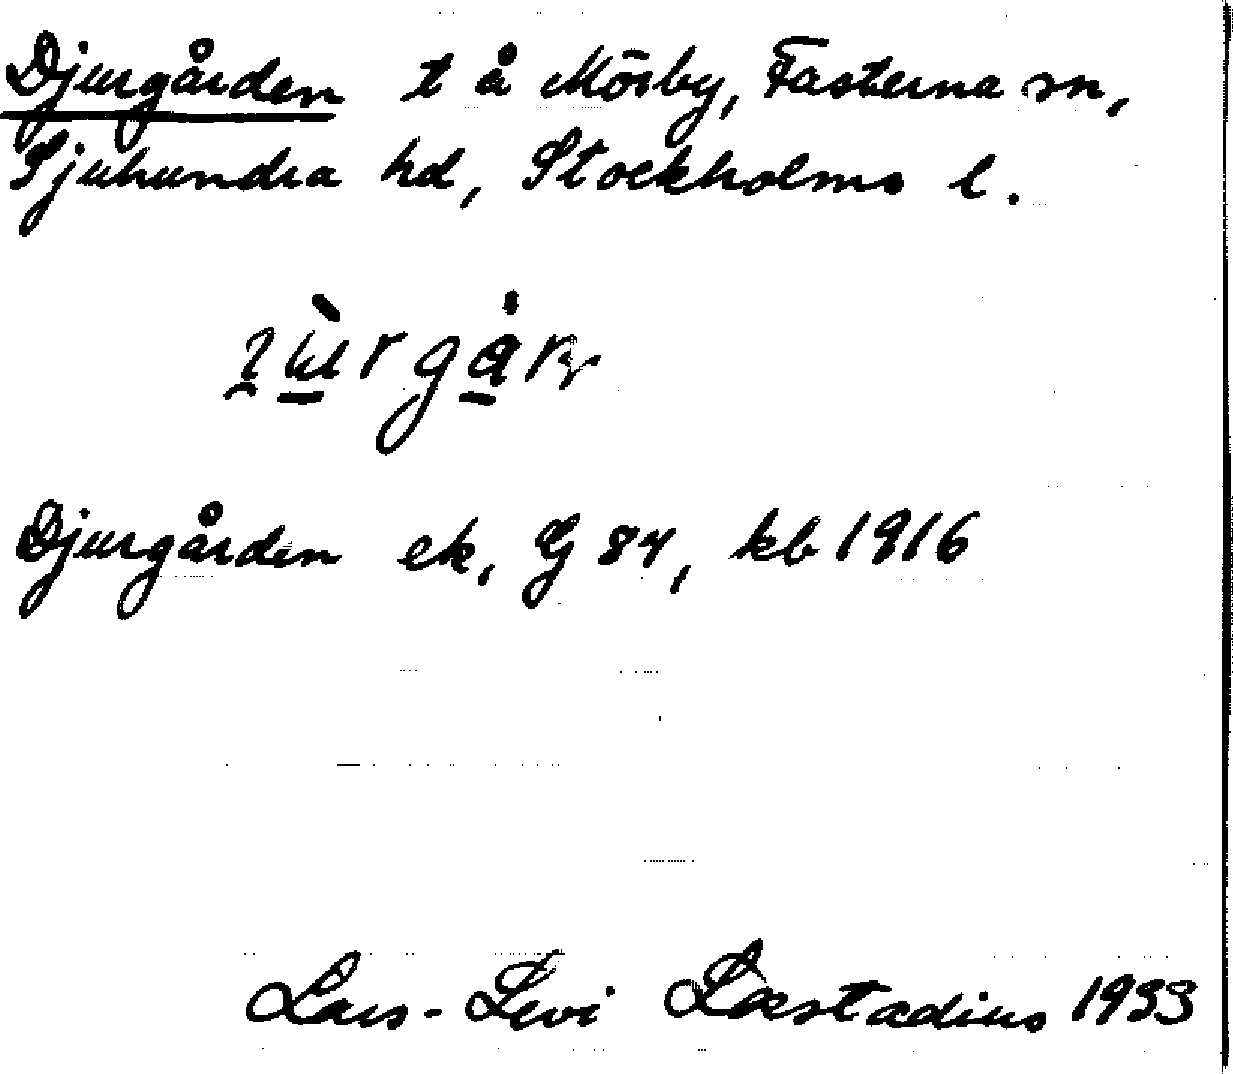 Djurgården t å Mösby, Fasterna sn,
Sjuhundra hd, Stockholms l.
Djurgården ek, G 84, kb 1916
Lars-Levi Læstadius 1933